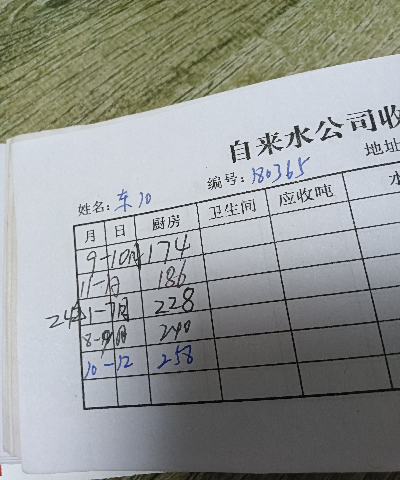 自来水公司收
姓名: 东10 编号: 180365 地址
月 日 厨房 卫生间 应收吨 水
9-10月 174
11-月 186
24年1-7月 228
8-9月 240
10-12 258